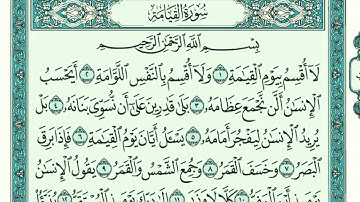 سُورَةُ القِيَامَةِ
بِسْمِ اللَّهِ الرَّحْمَٰنِ الرَّحِيمِ
لَا أُقْسِمُ بِيَوْمِ الْقِيَامَةِ ١ وَلَا أُقْسِمُ بِالنَّفْسِ اللَّوَّامَةِ ٢ أَيَحْسَبُ
الْإِنسَانُ أَلَّن نَّجْمَعَ عِظَامَهُ ٣ بَلَىٰ قَادِرِينَ عَلَىٰ أَن نُّسَوِّيَ بَنَانَهُ ٤ بَلْ
يُرِيدُ الْإِنسَانُ لِيَفْجُرَ أَمَامَهُ ٥ يَسْأَلُ أَيَّانَ يَوْمُ الْقِيَامَةِ ٦ فَإِذَا بَرِقَ
الْبَصَرُ ٧ وَخَسَفَ الْقَمَرُ ٨ وَجُمِعَ الشَّمْسُ وَالْقَمَرُ ٩ يَقُولُ الْإِنسَانُ